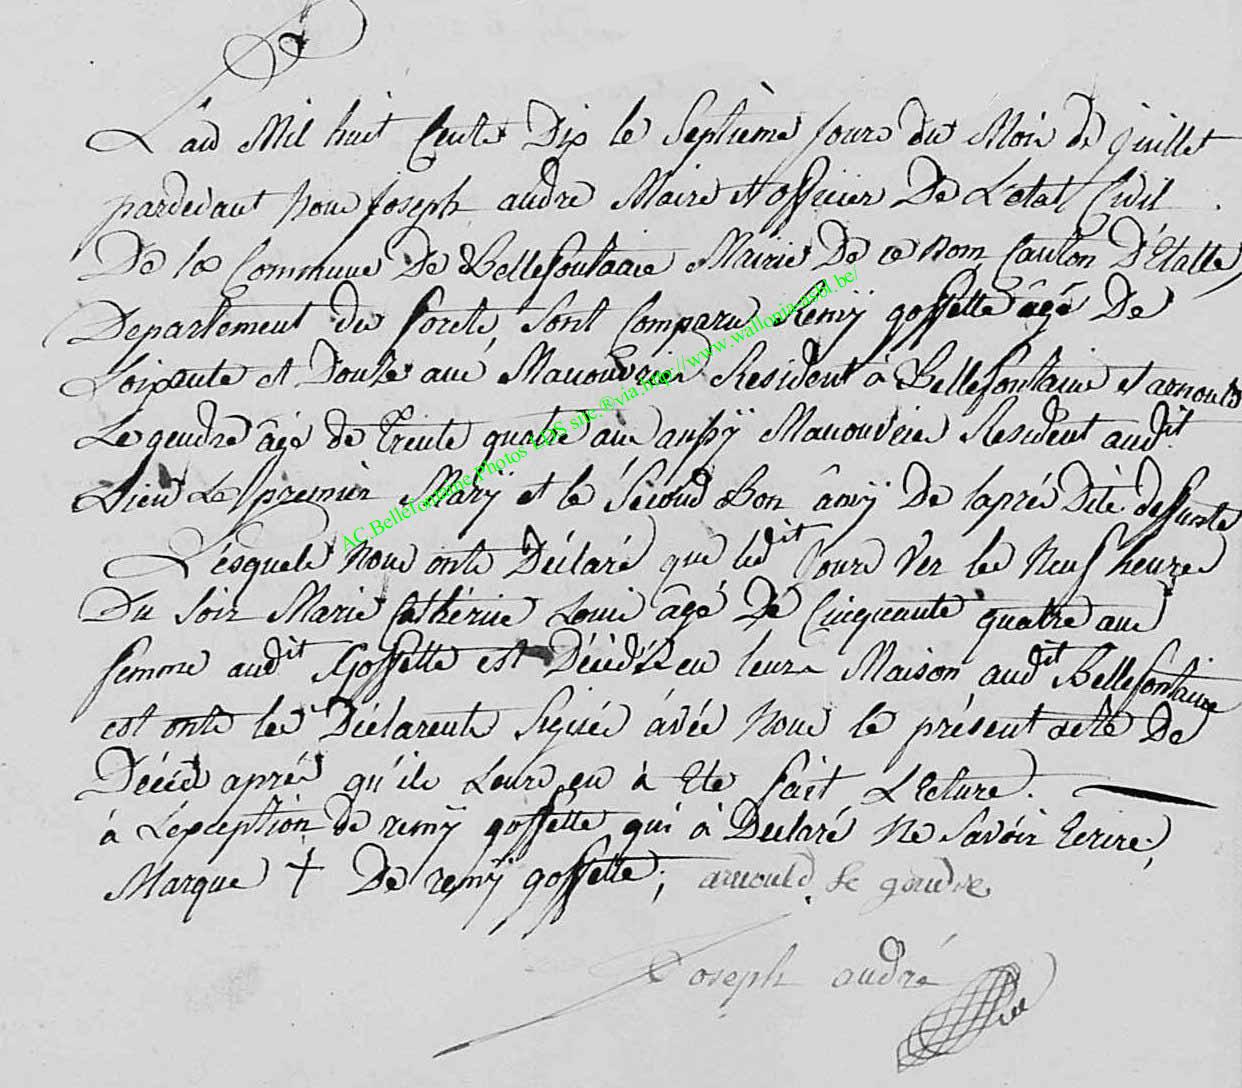 L'an Mil huit Cente Dix le Septième Jours du Mois de Juillet
pardevant Nous Joseph andre Maire et officier De L'etat Civil
De la Commune De Bellefontaine Mairie De ce nom Canton D'Etalle
Departement des foretes sont Comparu Remÿ gossette âgé De
Soixente et Douze ans Manouvrier Résident à Bellefontaine et arnould
Le gendre âgé de Trente quatre ans aussÿ Manouvrier Résident audit
Lieu Le premier Marÿ et le Sécond Bon âmÿ De l'aprés Dite deffunte
L'ésquels Nous onts Déclaré que ledit Jours Ver les Neuf heures
Du Soir Marie Cathérine Louis âgé De Cinquante quatre ans
femme audit Gossette est Décédée en leurs Maison audit Bellefontaine
est onts les Déclarents Signé àvéc Nous le présent acte De
Décéd aprés qu'ils Leurs en à Eté fait L'Ecture.
à L'éxception de remÿ gossette qui à Déclaré Ne Savoir Ecrire,
Marque + De remÿ gossette; arnould le gendre
Joseph andré
AC.Bellefontaine.Photos LDS site.®via.http://www.wallonia-asbl.be/